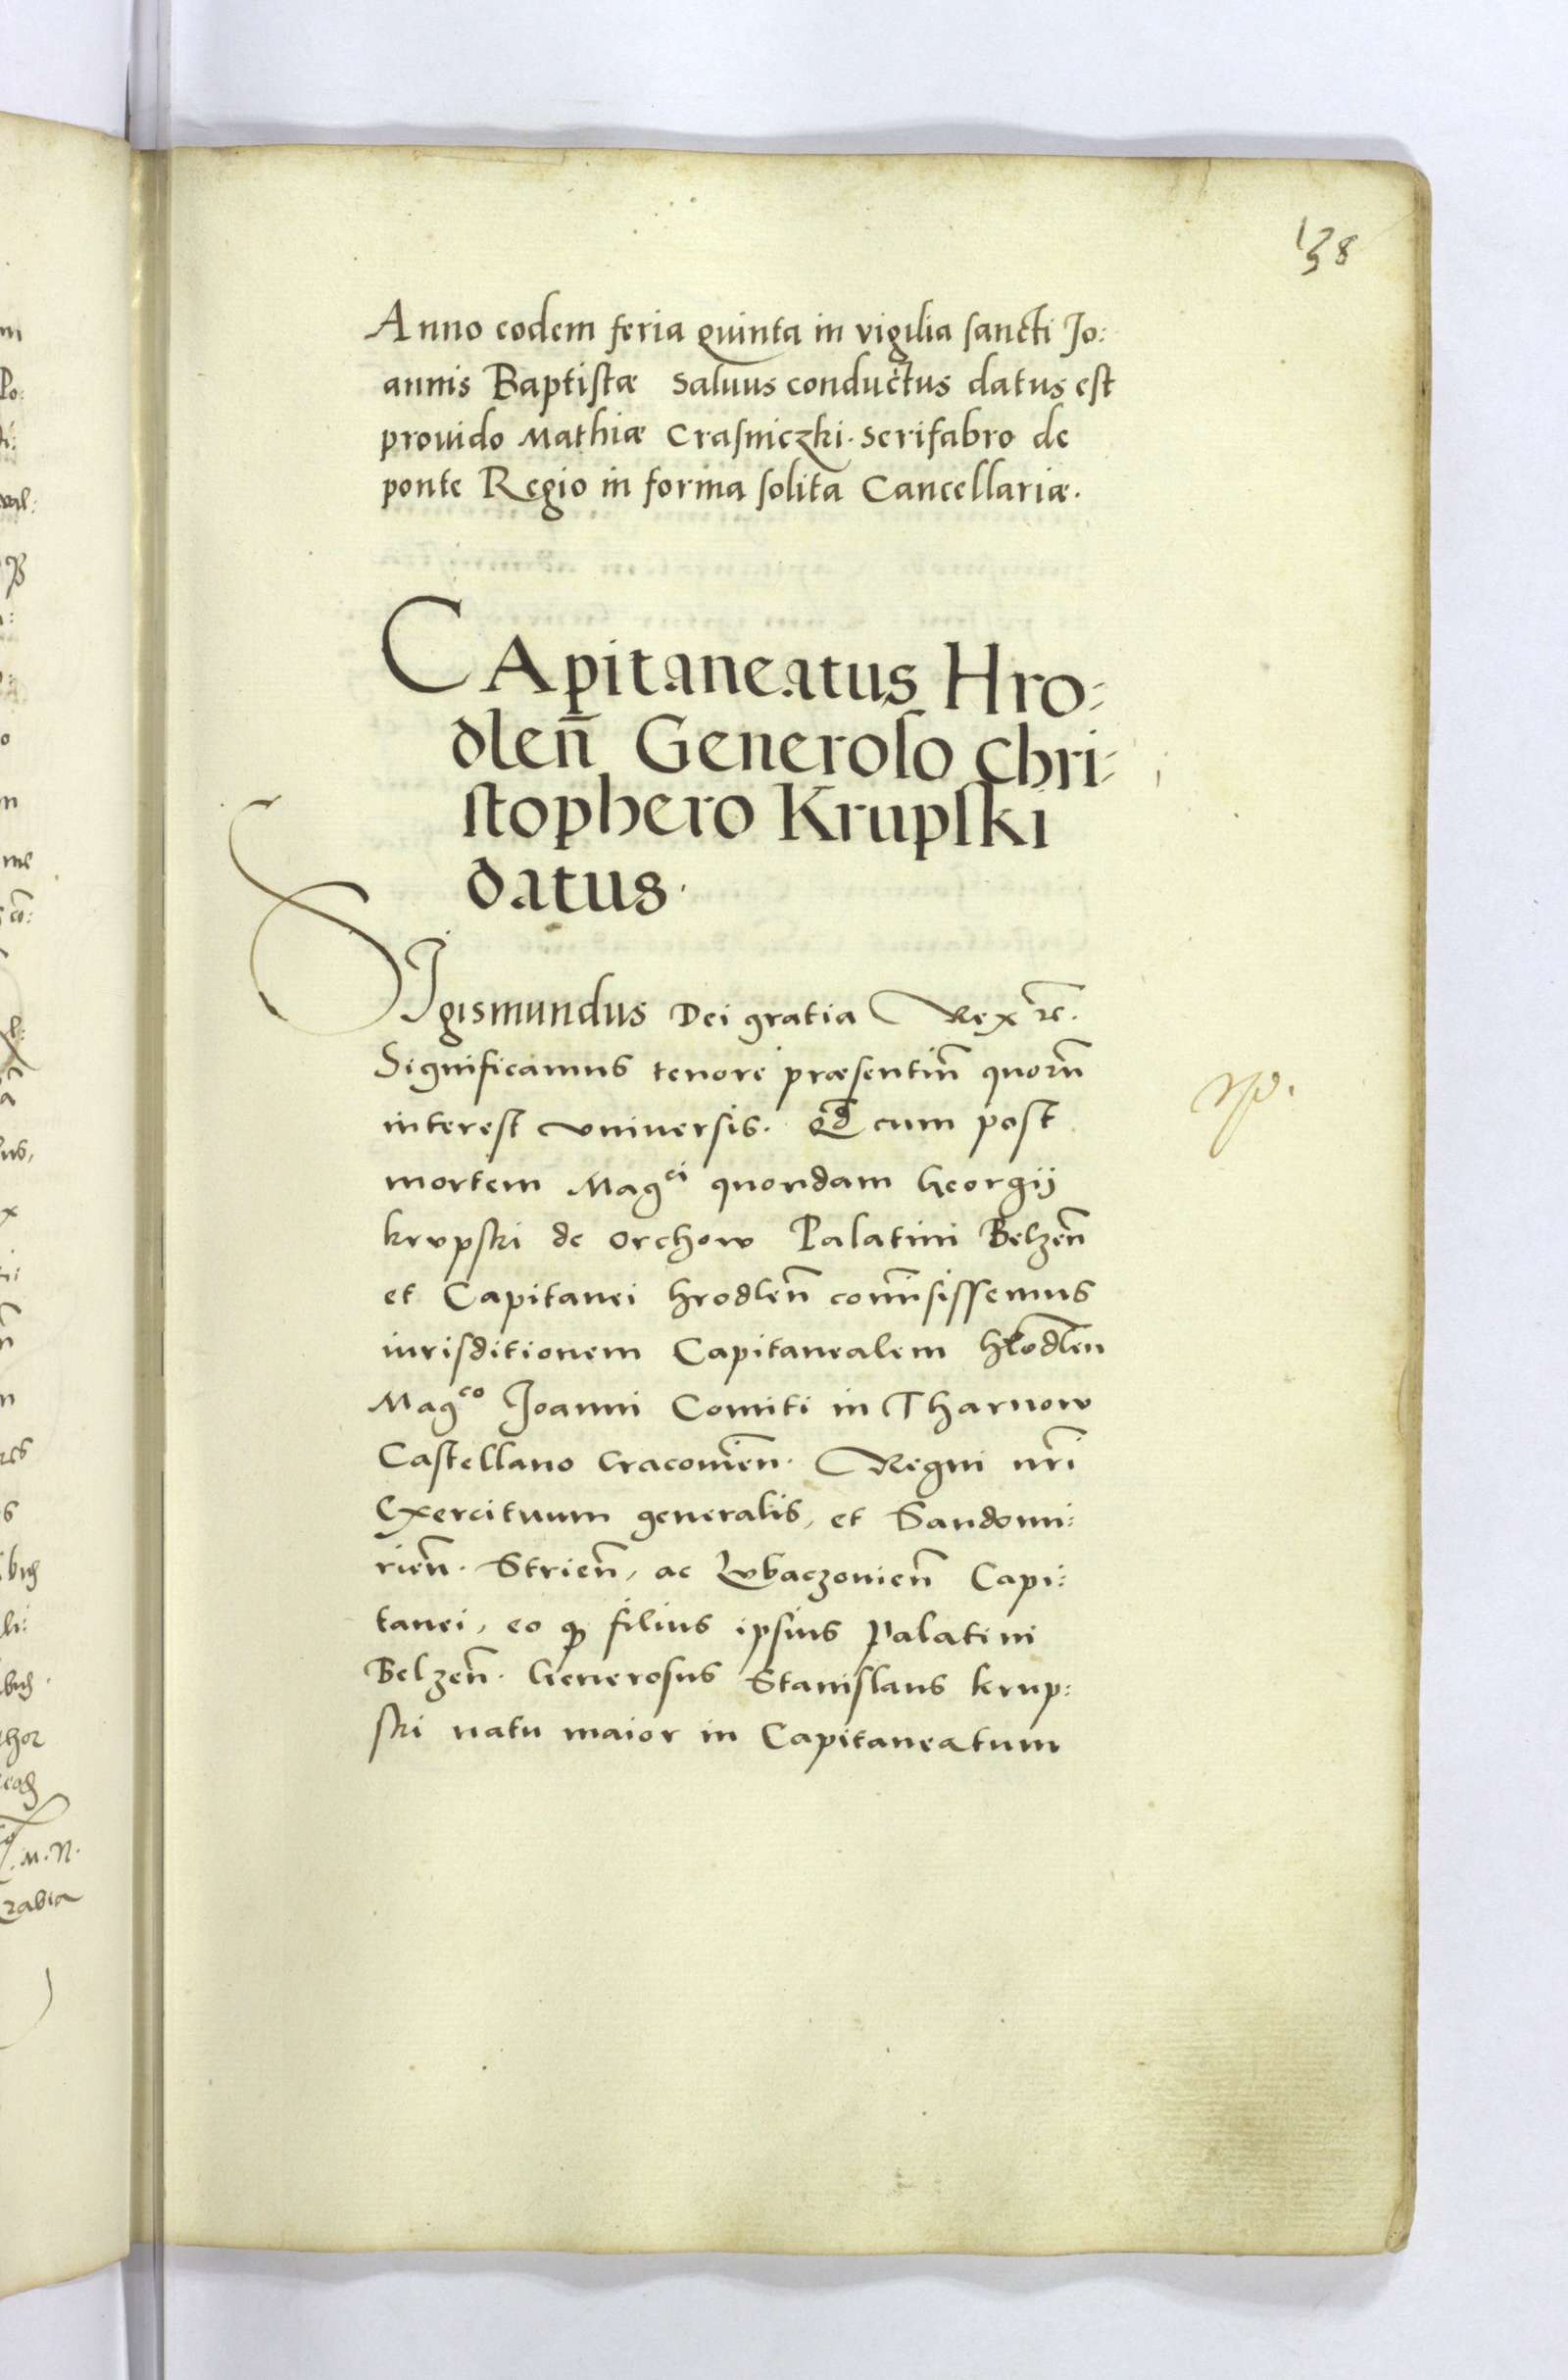 138
Anno eodem feria quinta in vigilia sancti Jo:
annis Baptistæ Saluus conductus datus est
prouido Mathiæ Crasniczki. Serifabro de
ponte Regio in forma solita Cancellariæ.
CApitaneatus Hro:
dlen̄ Generoso Chri:
stophero Krupski
datus.
SIgismundus Dei gratia Rex ꝛc.
Significamus tenore præsentiu̅ quoru̅
interest vniuersis. Qd̅ cum post
mortem Mag^ci quondam Georgij
krvpski de Orchow Palatini Belzen̅
et Capitanei hrodlen̅ com̅isissemus
iurisditionem Capitanealem hrodlen̅
Mag^co Joanni Comiti in Tharnow
Castellano Cracouien̅. Regni nr̅i
Exercituum generalis, et Sandomi:
rien̅. Strien̅, ac Lvbaczouien̅ Capi:
tanei, eo ꝙ filius ipsius Palatini
Belzen̅. Generosus Stanislaus krup:
ski natu maior in Capitaneatum